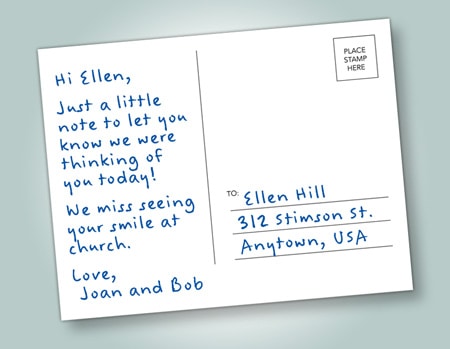 Hi Ellen,
Just a little
note to let you
know we were
thinking of
you today!
We miss seeing
your smile at
church.
Love,
Joan and Bob
PLACE
STAMP
HERE
TO: Ellen Hill
312 Stimson St.
Anytown, USA